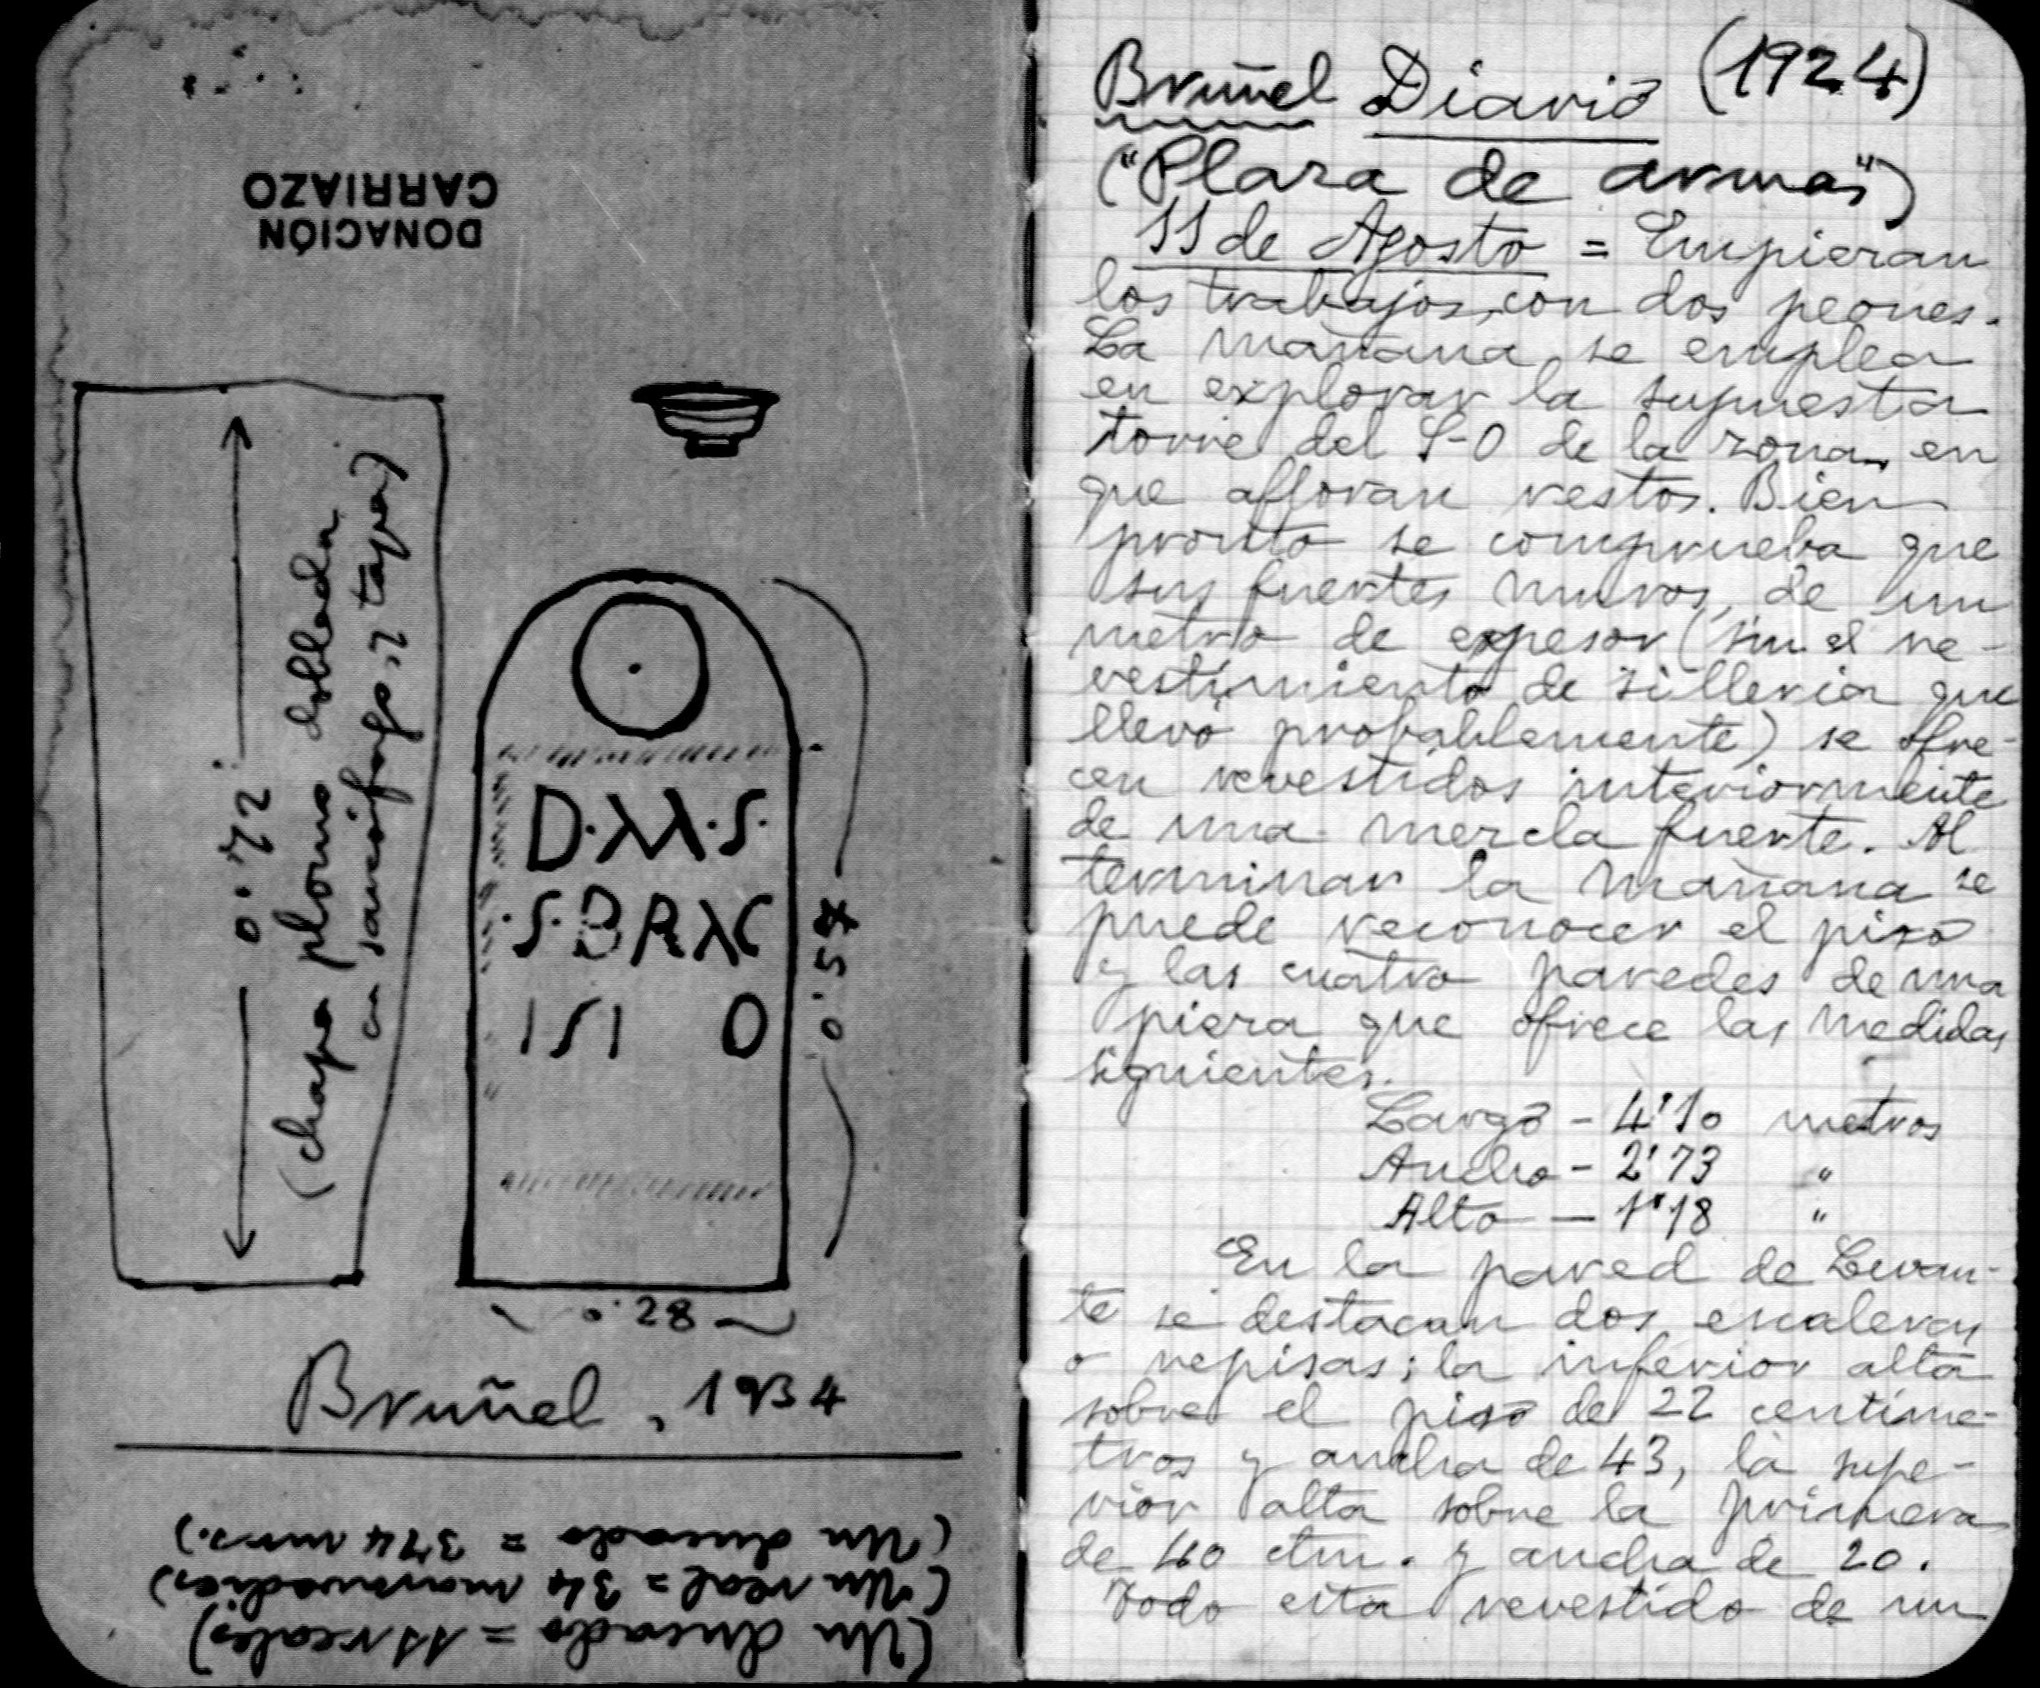 DONACIÓN
CARRIAZO
0'72
(chapa plomo doblada
en sarcófago, ¿tapa)
D·M·S·
·S·BARC
ISI O
0'57
0'28
Bruñel, 1934
(Un ducado = 11 reales)
(Un real = 34 maravedíes)
(Un ducado = 374 mrs.)
Bruñel Diario (1924)
("Plaza de armas")
11 de Agosto = Empiezan
los trabajos, con dos peones.
La mañana se emplea
en explorar la supuesta
torre del S-O de la zona en
que afloran restos. Bien
pronto se comprueba que
sus fuertes muros, de un
metro de espesor (sin el re-
vestimiento de sillería que
llevó probablemente) se ofre-
cen revestidos interiormente
de una mezcla fuerte. Al
terminar la mañana se
puede reconocer el piso
y las cuatro paredes de una
pieza que ofrece las medidas
siguientes.
Largo - 4'10 metros
Ancho - 2'73 "
Alto — 1'18 "
En la pared de Levan-
te se destacan dos escaleras
o repisas; la inferior alta
sobre el piso de 22 centíme-
tros y ancha de 43, la supe-
rior alta sobre la primera
de 40 ctm. y ancha de 20.
Todo está revestido de un